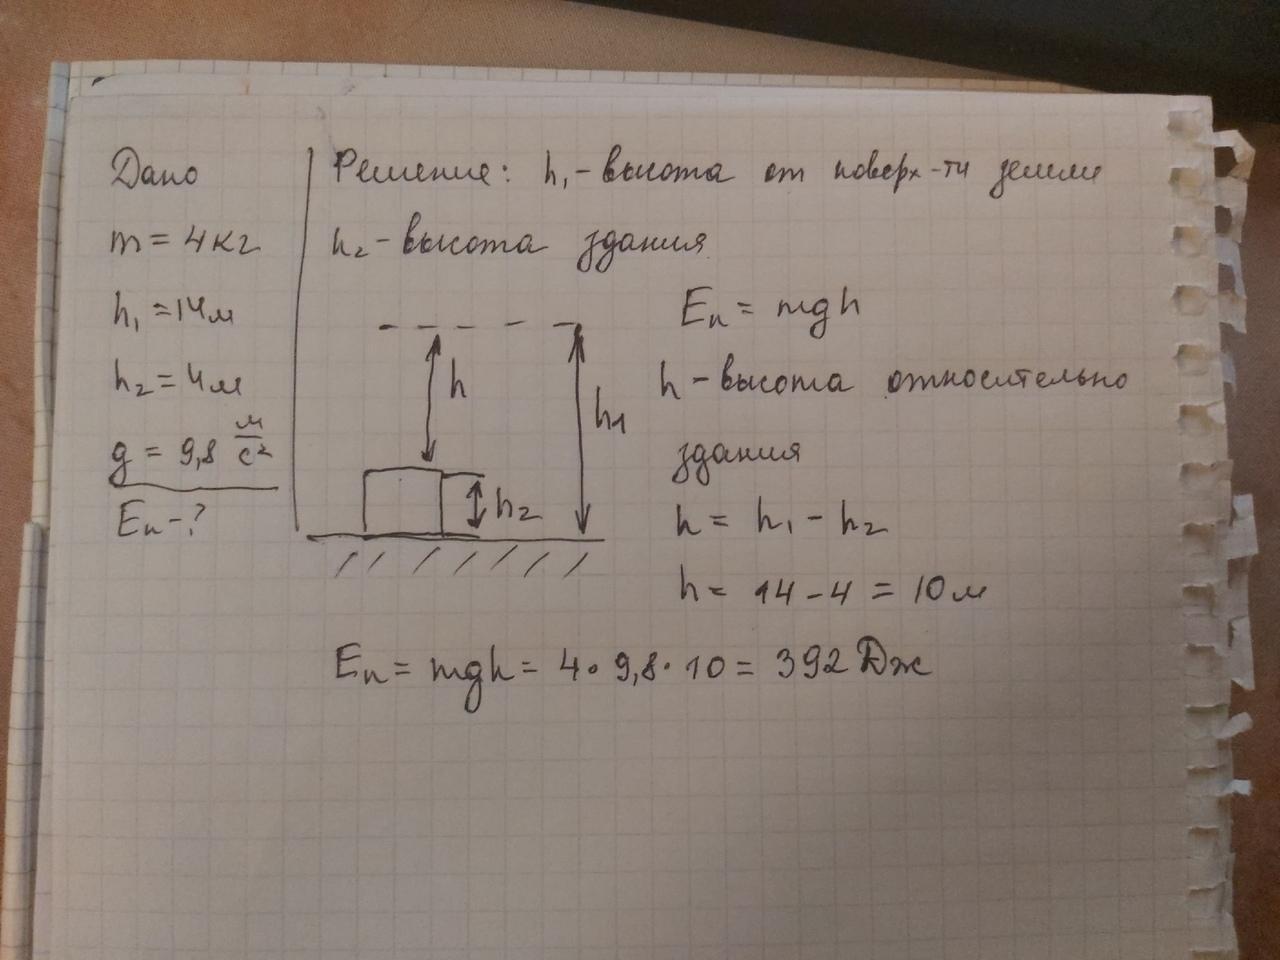 Дано
m = 4 кг
h₁ = 14 м
h₂ = 4 м
g = 9,8 м/с²
Eп - ?
Решение: h₁ - высота от поверх-ти земли
h₂ - высота здания
h
h₁
h₂
Eп = mgh
h - высота относительно
здания
h = h₁ - h₂
h = 14 - 4 = 10 м
Eп = mgh = 4 · 9,8 · 10 = 392 Дж